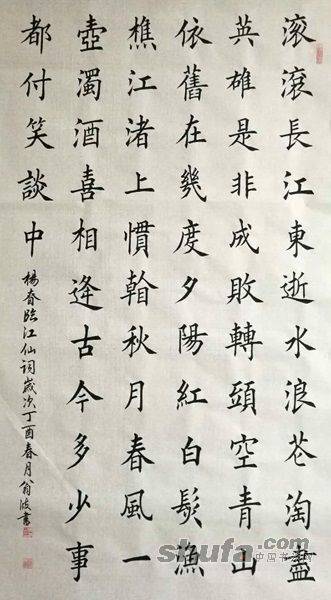 滚滾長江東逝水浪花淘盡
英雄是非成敗轉頭空青山
依舊在幾度夕陽紅白髮漁
樵江渚上慣翰秋月春風一
壺濁酒喜相逢古今多少事
都付笑談中
楊眘臨江仙詞歲次丁酉春月翁波書
shufa.com